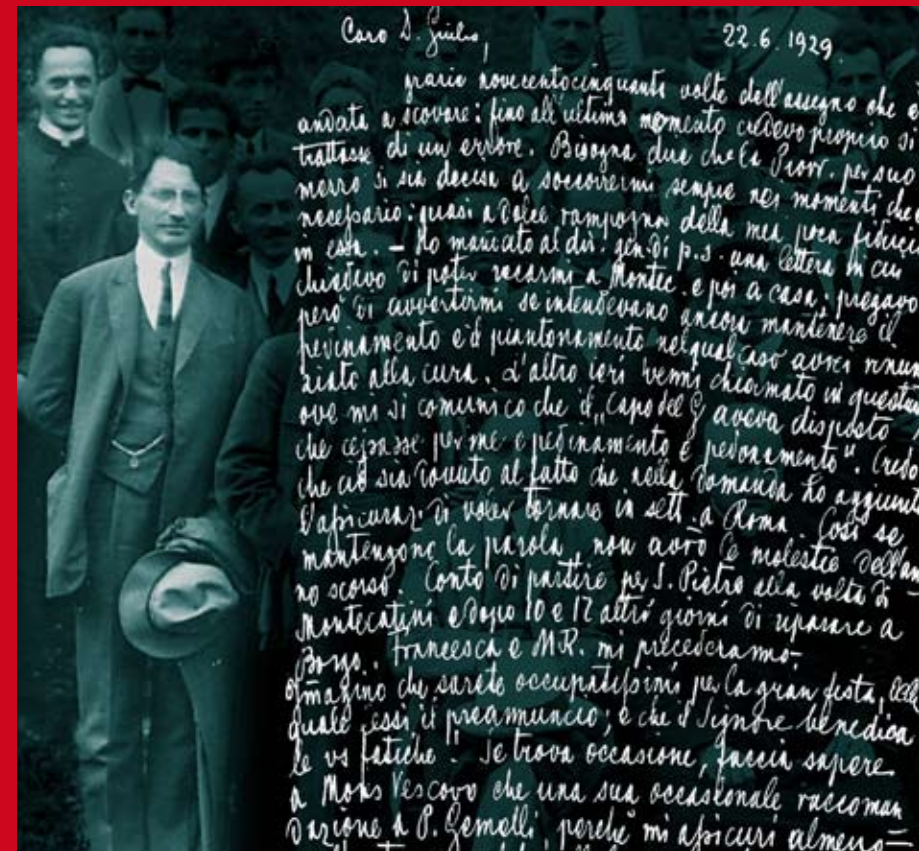 Caro D. Giulio,
22.6.1929.
grazie novecentocinquanta volte dell'assegno che è
andata a scovare: fino all'ultimo momento credevo proprio si
trattasse di un errore. Bisogna dire che la Provv. per suo
mezzo si sia decisa a soccorrermi sempre nei momenti che
necessario: quasi a dolce rampogna della mia poca fiducia
in essa. – Ho mandato al dir. gen. di p.s. una lettera in cui
chiedevo di poter recarmi a Montec. e poi a casa; pregavo
però di avvertirmi se intendevano ancora mantenere il
pedinamento e il piantonamento nel qual caso avrei renun
ziato alla cura. L'altro ieri venni chiamato in questura
ove mi si comunicò che il "capo del G aveva disposto
che cessasse per me e pedinamento e". Credo
che ciò sia dovuto al fatto che nella domanda ho aggiunto
l'assicuraz. di voler tornare in sett. a Roma. Così se
mantengono la parola, non avrò le molestie dell'an
no scorso. Conto di partire per S. Pietro alla volta di
Montecatini e dopo 10 e 12 altri giorni di riparare a
Borgo. Francesca e M.R. mi precederanno.
Immagino che sarete occupatissimi per la gran festa, della
quale lessi il preannuncio; e che il Signore benedica
le vs fatiche! Se trova occasione, faccia sapere
a Mons Vescovo che una sua occasionale raccoman
dazione a P. Gemelli perché mi assicuri almeno